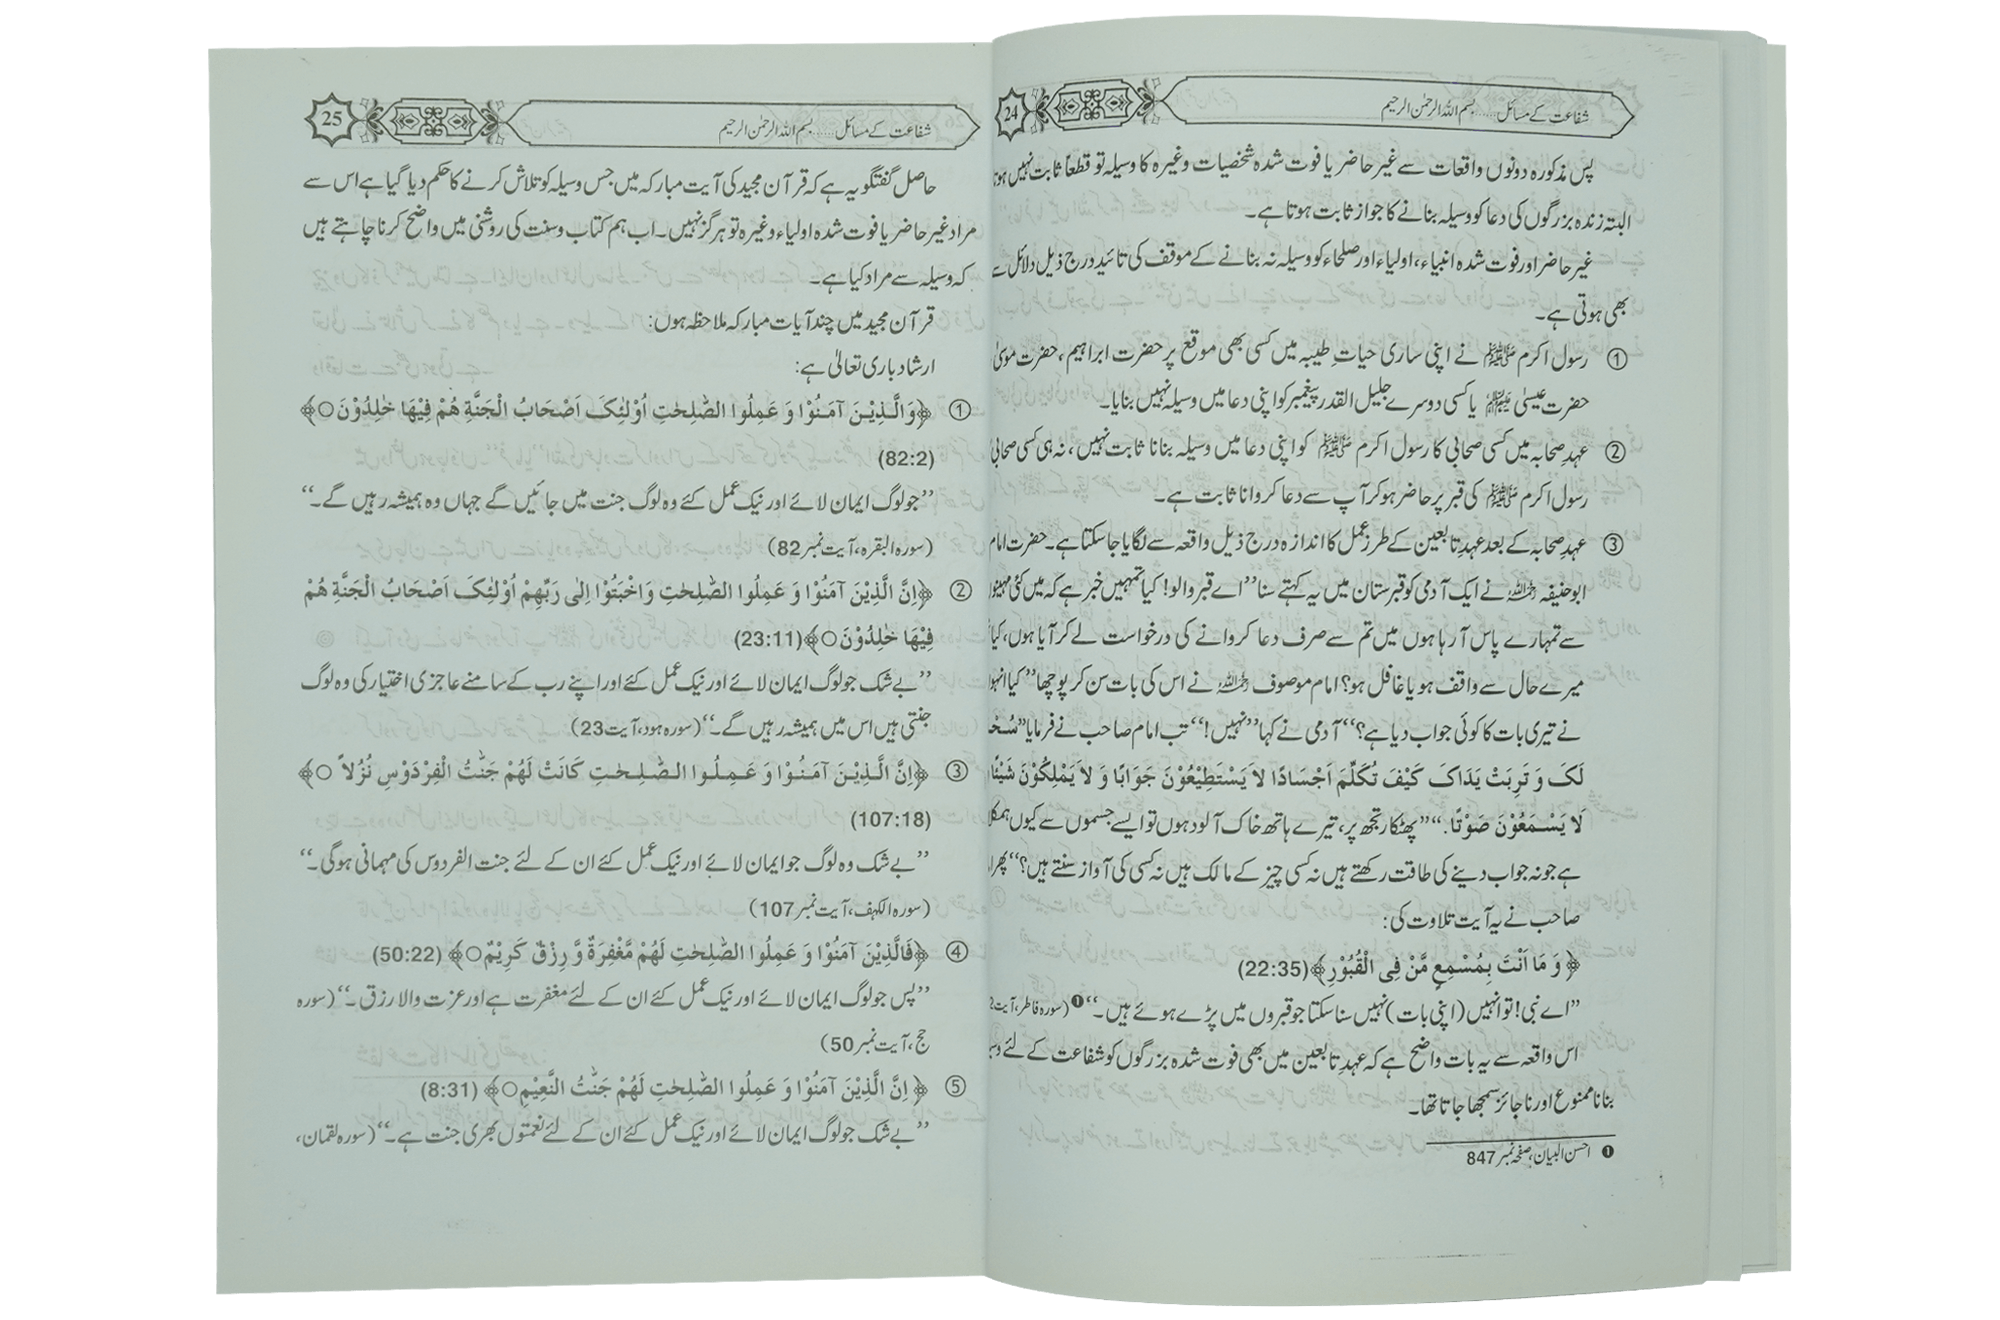 24
شفاعت کے مسائل......بسم اللہ الرحمٰن الرحیم
پس مذکورہ دونوں واقعات سے غیر حاضر یا فوت شدہ شخصیات وغیرہ کا وسیلہ تو قطعاً ثابت نہیں ہوتا
البتہ زندہ بزرگوں کی دعا کو وسیلہ بنانے کا جواز ثابت ہوتا ہے۔
غیر حاضر اور فوت شدہ انبیاء، اولیاء اور صلحاء کو وسیلہ نہ بنانے کے موقف کی تائید درج ذیل دلائل سے
بھی ہوتی ہے۔
① رسول اکرم ﷺ نے اپنی ساری حیاتِ طیبہ میں کسی بھی موقع پر حضرت ابراہیم، حضرت موسیٰ
حضرت عیسیٰ علیہم السلام یا کسی دوسرے جلیل القدر پیغمبر کو اپنی دعا میں وسیلہ نہیں بنایا۔
② عہد صحابہ میں کسی صحابی کا رسول اکرم ﷺ کو اپنی دعا میں وسیلہ بنانا ثابت نہیں، نہ ہی کسی صحابی
رسول اکرم ﷺ کی قبر پر حاضر ہو کر آپ سے دعا کروانا ثابت ہے۔
③ عہد صحابہ کے بعد عہد تابعین کے طرز عمل کا اندازہ درج ذیل واقعہ سے لگایا جا سکتا ہے۔ حضرت امام
ابو حنیفہ رحمہ اللہ نے ایک آدمی کو قبرستان میں یہ کہتے سنا ’’اے قبر والو! کیا تمہیں خبر ہے کہ میں کئی مہینوں
سے تمہارے پاس آ رہا ہوں میں تم سے صرف دعا کروانے کی درخواست لے کر آیا ہوں، کیا
میرے حال سے واقف ہو یا غافل ہو؟ امام موصوف رحمہ اللہ نے اس کی بات سن کر پوچھا ’’کیا
نے تیری بات کا کوئی جواب دیا ہے؟‘‘ آدمی نے کہا ’’نہیں!‘‘ تب امام صاحب نے فرمایا
لَکَ وَ تَرِبَتْ یَدَاکَ کَیْفَ تُکَلِّمَ اَجْسَادًا لاَ یَسْتَطِیْعُوْنَ جَوَابًا وَ لاَ یَمْلِکُوْنَ شَیْئًا
لَا یَسْمَعُوْنَ صَوْتًا۔‘‘ ’’پھٹکار تجھ پر، تیرے ہاتھ خاک آلود ہوں تو ایسے جسموں سے کیوں
ہے جو نہ جواب دینے کی طاقت رکھتے ہیں نہ کسی چیز کے مالک ہیں نہ کسی کی آواز سنتے ہیں؟‘‘ پھر
صاحب نے یہ آیت تلاوت کی:
﴿ وَ مَا اَنْتَ بِمُسْمِعٍ مَّنْ فِی الْقُبُوْرِ﴾ (22:35)
’’اے نبی! تو انہیں (اپنی بات) نہیں سنا سکتا جو قبروں میں پڑے ہوئے ہیں۔‘‘❶ (سورہ فاطر، آیت
اس واقعہ سے یہ بات واضح ہے کہ عہد تابعین میں بھی فوت شدہ بزرگوں کو شفاعت کے لئے
بنانا ممنوع اور ناجائز سمجھا جاتا تھا۔
❶ احسن البیان، صفحہ نمبر 847
25
شفاعت کے مسائل......بسم اللہ الرحمٰن الرحیم
حاصل گفتگو یہ ہے کہ قرآن مجید کی آیت مبارکہ میں جس وسیلہ کو تلاش کرنے کا حکم دیا گیا ہے اس سے
مراد غیر حاضر یا فوت شدہ اولیاء وغیرہ تو ہرگز نہیں۔ اب ہم کتاب و سنت کی روشنی میں واضح کرنا چاہتے ہیں
کہ وسیلہ سے مراد کیا ہے۔
قرآن مجید میں چند آیات مبارکہ ملاحظہ ہوں:
ارشاد باری تعالیٰ ہے:
① ﴿وَالَّذِیْنَ آمَنُوْا وَ عَمِلُوا الصّٰلِحٰتِ اُوْلٰئِکَ اَصْحَابُ الْجَنَّةِ هُمْ فِیْهَا خٰلِدُوْنَ○﴾
(82:2)
’’جو لوگ ایمان لائے اور نیک عمل کئے وہ لوگ جنت میں جائیں گے جہاں وہ ہمیشہ رہیں گے۔‘‘
(سورہ البقرہ، آیت نمبر 82)
② ﴿اِنَّ الَّذِیْنَ آمَنُوْا وَ عَمِلُوا الصّٰلِحٰتِ وَاَخْبَتُوْا اِلٰی رَبِّهِمْ اُوْلٰئِکَ اَصْحَابُ الْجَنَّةِ هُمْ
فِیْهَا خٰلِدُوْنَ○﴾ (23:11)
’’بے شک جو لوگ ایمان لائے اور نیک عمل کئے اور اپنے رب کے سامنے عاجزی اختیار کی وہ لوگ
جنتی ہیں اس میں ہمیشہ رہیں گے۔‘‘ (سورہ ہود، آیت 23)
③ ﴿اِنَّ الَّذِیْنَ آمَنُوْا وَ عَمِلُوا الصّٰلِحٰتِ کَانَتْ لَهُمْ جَنّٰتُ الْفِرْدَوْسِ نُزُلاً ○﴾
(107:18)
’’بے شک وہ لوگ جو ایمان لائے اور نیک عمل کئے ان کے لئے جنت الفردوس کی مہمانی ہوگی۔‘‘
(سورہ الکہف، آیت نمبر 107)
④ ﴿فَالَّذِیْنَ آمَنُوْا وَ عَمِلُوا الصّٰلِحٰتِ لَهُمْ مَّغْفِرَةٌ وَّ رِزْقٌ کَرِیْمٌ○﴾ (50:22)
’’پس جو لوگ ایمان لائے اور نیک عمل کئے ان کے لئے مغفرت ہے اور عزت والا رزق۔‘‘ (سورہ
حج، آیت نمبر 50)
⑤ ﴿ اِنَّ الَّذِیْنَ آمَنُوْا وَ عَمِلُوا الصّٰلِحٰتِ لَهُمْ جَنّٰتُ النَّعِیْمِ○﴾ (8:31)
’’بے شک جو لوگ ایمان لائے اور نیک عمل کئے ان کے لئے نعمتوں بھری جنت ہے۔‘‘ (سورہ لقمان،